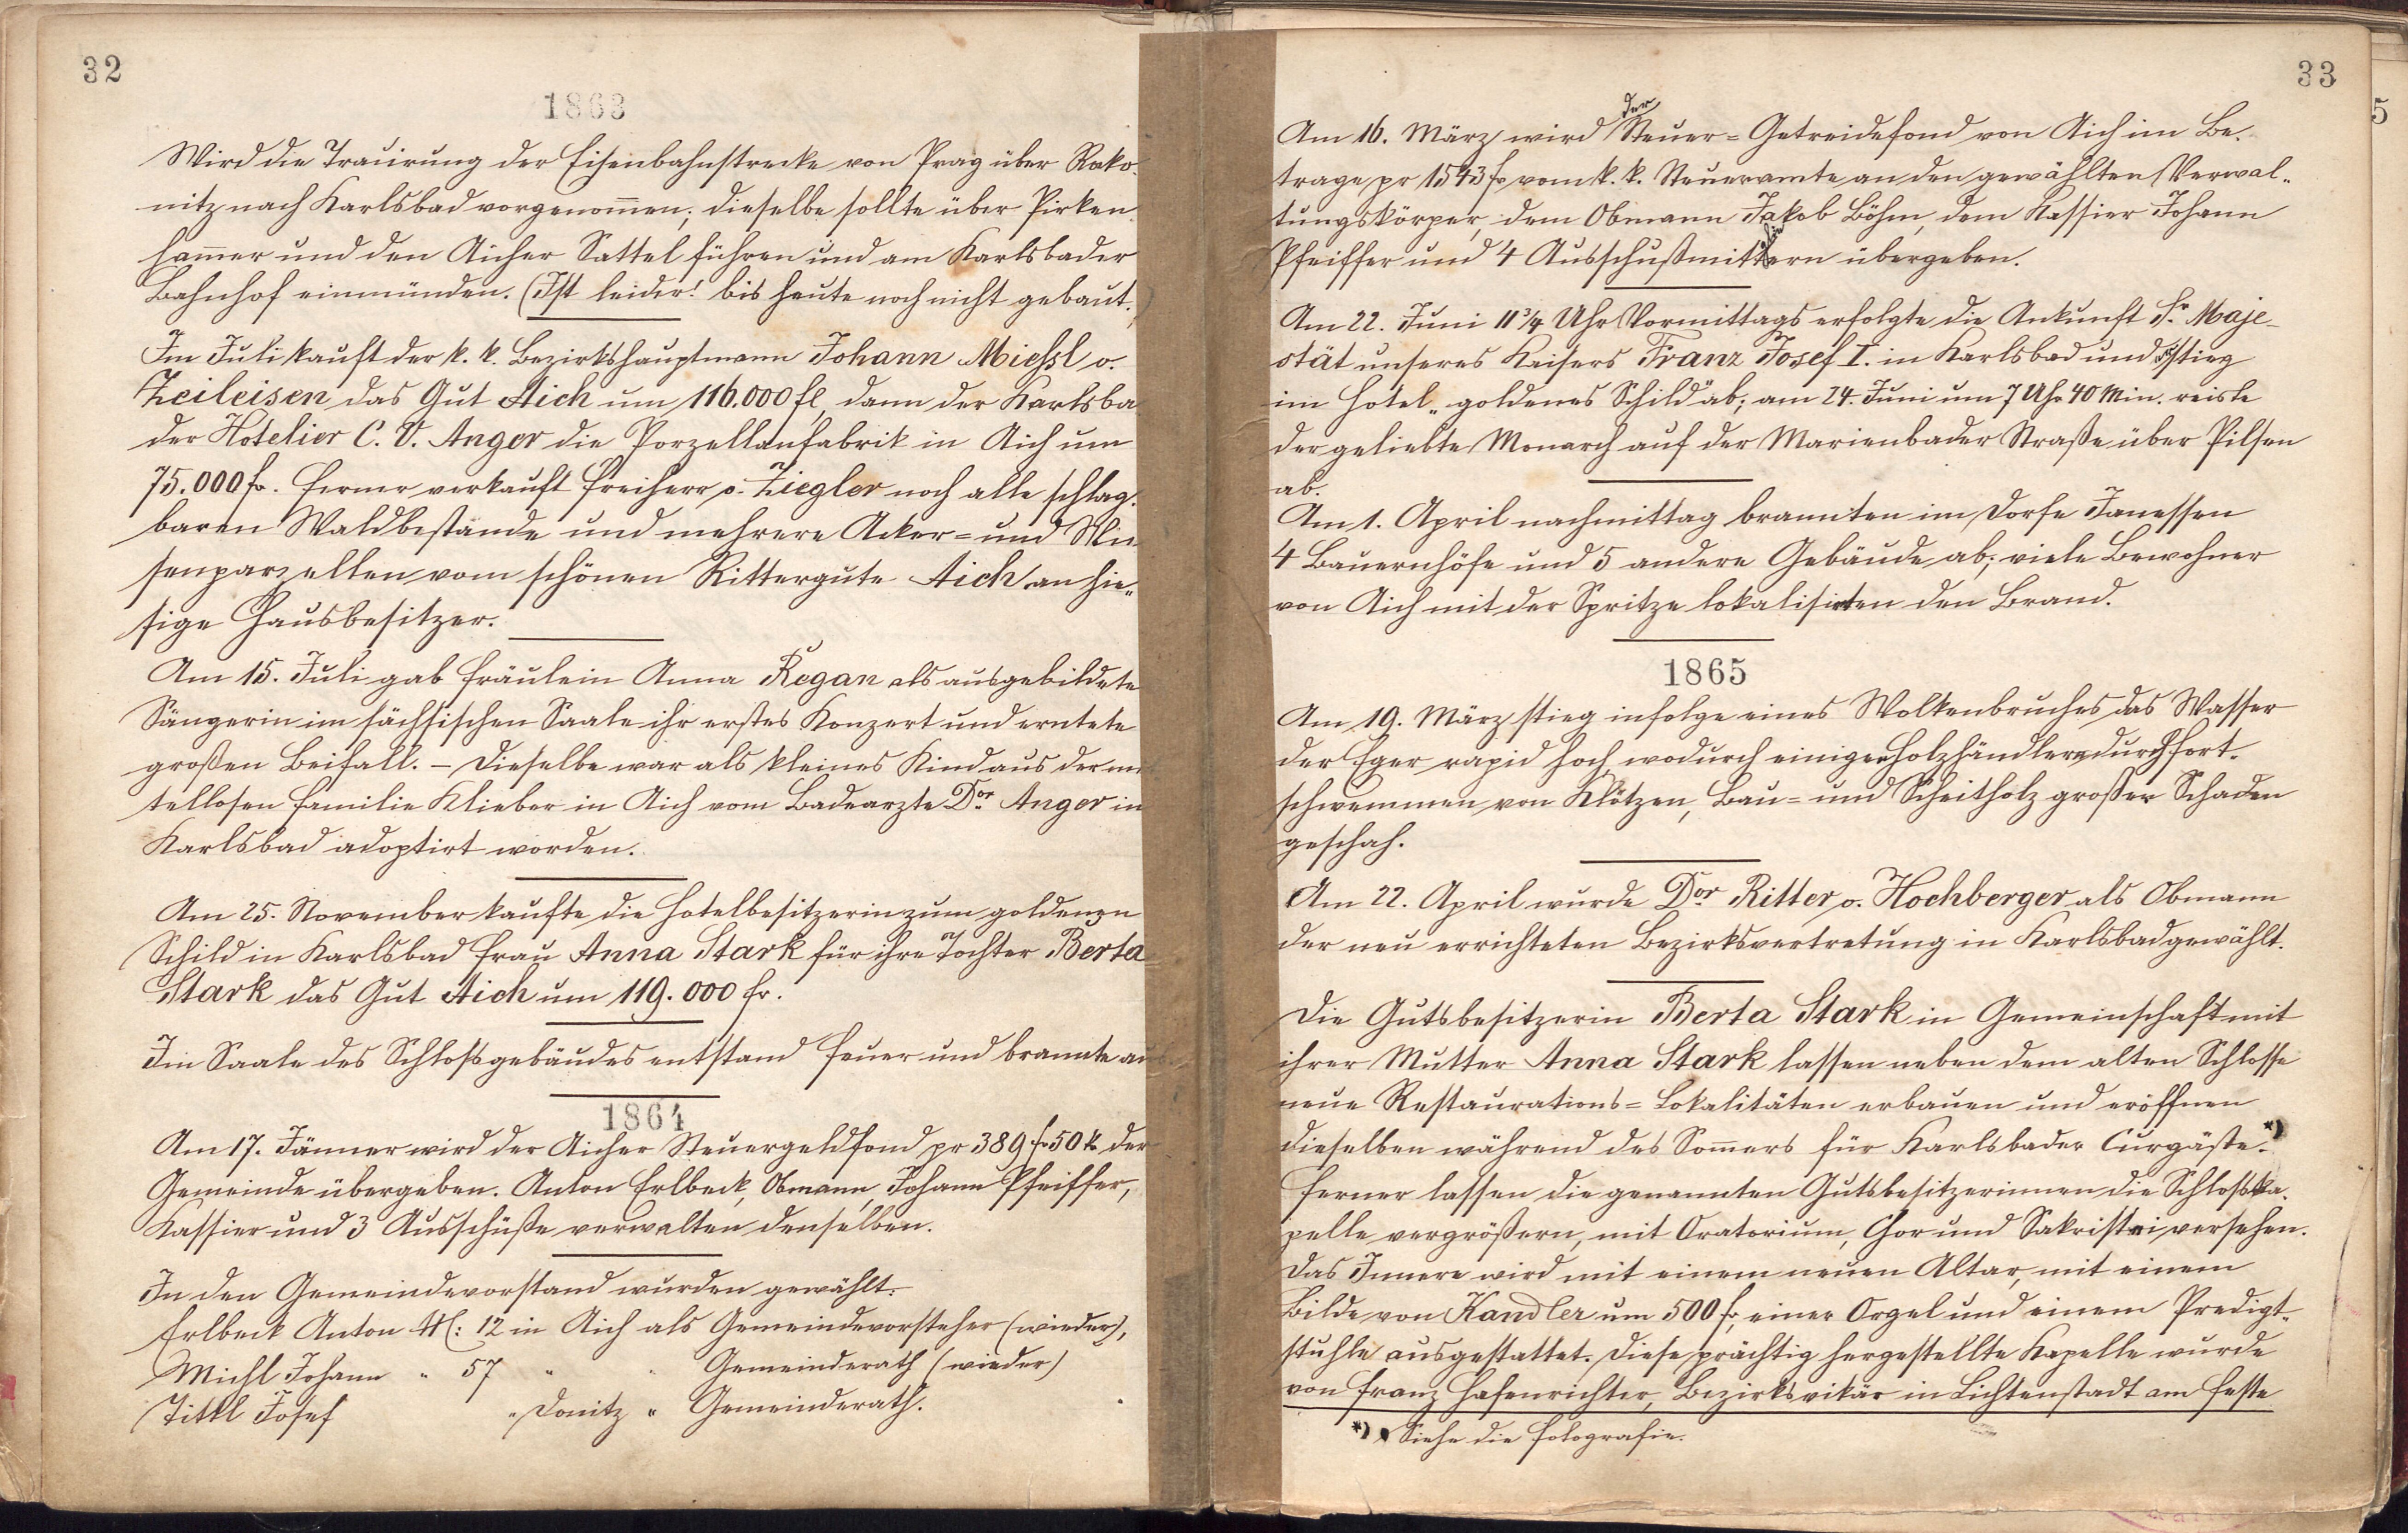 32
1863
Wird die Trauirung der Eisenbahnstrecke von Prag über Rako-
nitz nach Karlsbad vorgenom̄en; dieselbe sollte über Pirken-
ham̄er und den Aicher Sattel führen und am Karlsbader
Bahnhof einmünden. (Ist leider! bis heute noch nicht gebaut.)
Im Juli kauft der k. k. Bezirkshauptmann Johann Miessl v.
Zeileisen das Gut Aich um 116.000 fl, dann der Karlsba
der Hotelier C. V. Anger die Porzellanfabrik in Aich um
75.000 fr. Ferner verkauft Freiherr v. Ziegler noch alle schlag-
baren Waldbestände und mehrere Acker= und Wie
senparzellen vom schönen Rittergute Aich an hie-
sige Hausbesitzer.
Am 15. Juli gab Fräulein Anna Regan als ausgebildete
Sängerin im sächsischen Saale ihr erstes Konzert und erntete
großen Beifall. – Dieselbe war als kleines Kind aus der mit
tellosen Familie Klieber in Aich vom Badearzte Dor Anger in
Karlsbad adoptirt worden.
Am 25. November kaufte die Hotelbesitzerin zum goldenen
Schild in Karlsbad Frau Anna Stark für ihre Tochter Berta
Stark das Gut Aich um 119.000 fr.
Im Saale des Schloßgebäudes entstand Feuer und brannte aus
1864
Am 17. Jänner wird der Aicher Steuergeldfond pr 389 fr 50 k der
Gemeinde übergeben. Anton Erlbeck, Obmann, Johann Pfeiffer,
Kassier und 3 Ausschüße verwalten denselben.
In den Gemeindevorstand wurden gewählt:
Erlbeck Anton N: 12 in Aich als Gemeindevorsteher (wieder),
Michl Johann " 57 " " Gemeinderath (wieder)
Titkl Josef " Donitz " Gemeinderath.
33
Am 16. März wird der Steuer=Getreidefond von Aich im Be-
trage pr 1543 fr vom k. k. Steueramte an den gewählten Verwal-
tungskörper, dem Obmann Jakob Böhm, dem Kassier Johann
Pfeiffer und 4 Ausschußmitgliedern übergeben.
Am 22. Juni 11¾ Uhr Vormittags erfolgte die Ankunft Sr Maje-
stät unseres Kaisers Franz Josef I. in Karlsbad und stieg
im Hotel „goldenes Schild" ab; am 24. Juni um 7 Uhr 40 Min. reiste
der geliebte Monarch auf der Marienbader Straße über Pilsen
ab.
Am 1. April nachmittag brannten im Dorfe Janessen
4 Bauernhöfe und 5 andere Gebäude ab; viele Bewohner
von Aich mit der Spritze lokalisirten den Brand.
1865
Am 19. März stieg infolge eines Wolkenbruches das Wasser
der Eger rapid hoch, wodurch einigen Holzhändlern durch Fort-
schwemmen von Klötzen, Bau= und Scheitholz großer Schaden
geschah.
Am 22. April wurde Dor Ritter v. Hochberger als Obmann
der neu errichteten Bezirksvertretung in Karlsbad gewählt.
Die Gutsbesitzerin Berta Stark in Gemeinschaft mit
ihrer Mutter Anna Stark lassen neben dem alten Schlosse
neue Restaurations=Lokalitäten erbauen und eröffnen
dieselben während des Som̄ers für Karlsbader Curgäste. *)
Ferner lassen die genannten Gutsbesitzerinnen die Schloßka-
pelle vergrößern, mit Oratorium, Chor und Sakristei versehen.
Das Innere wird mit einem neuen Altar, mit einem
Bilde von Kandler um 500 fr, einer Orgel und einem Predigt-
stuhle ausgestattet. Diese prächtig hergestellte Kapelle wurde
von Franz Hafenrichter, Bezirksvikär in Lichtenstadt am Feste
*) Siehe die Fotografie.
5